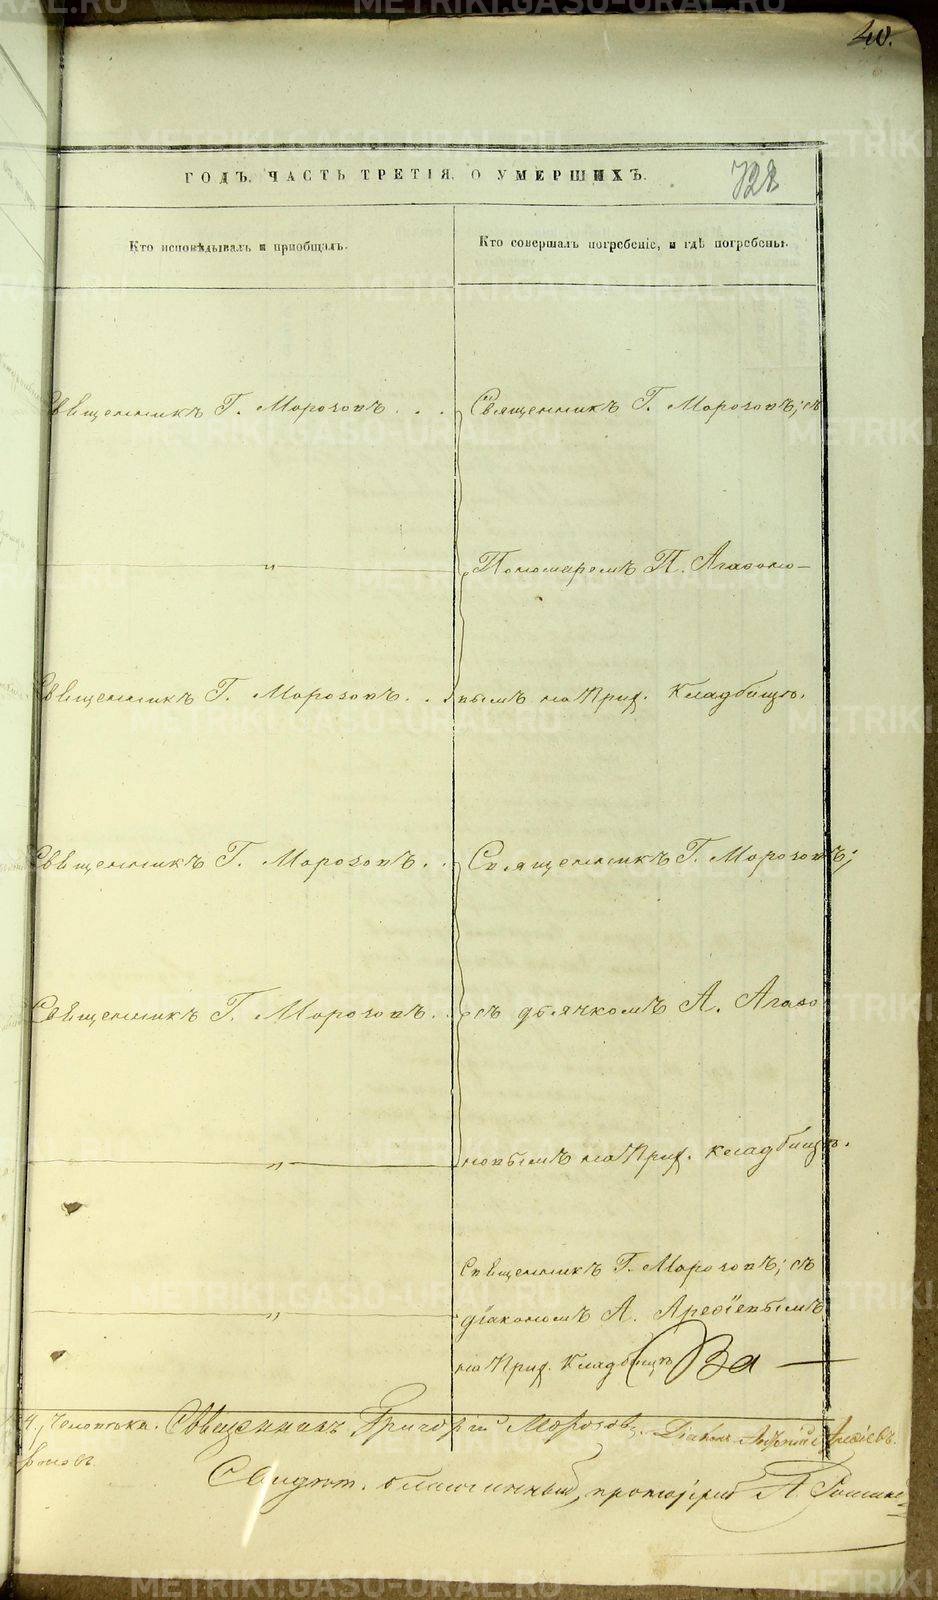 40.
ГОДЪ. ЧАСТЬ ТРЕТІЯ, О УМЕРШИХЪ.
728
Кто исповѣдывалъ и пріобщалъ.
Кто совершалъ погребеніе, и гдѣ погребены.
Священникъ Г. Морозовъ . . .
Священникъ Г. Морозовъ; съ
"
Пономаремъ П. Агафоно-
Священникъ Г. Морозовъ . .
вымъ на Прих. Кладбищѣ.
Священникъ Г. Морозовъ . .
Священникъ Г. Морозовъ;
Священникъ Г. Морозовъ . .
съ дьячкомъ А. Агафо
"
новымъ на Прих. кладбищѣ.
Священникъ Г. Морозовъ; съ
"
діакономъ А. Арефіевымъ
на Прих. Кладбищѣ
Священникъ Григорій Морозов. Діаконъ
благочинный, протоіерей
METRIKI.GASO-URAL.RU